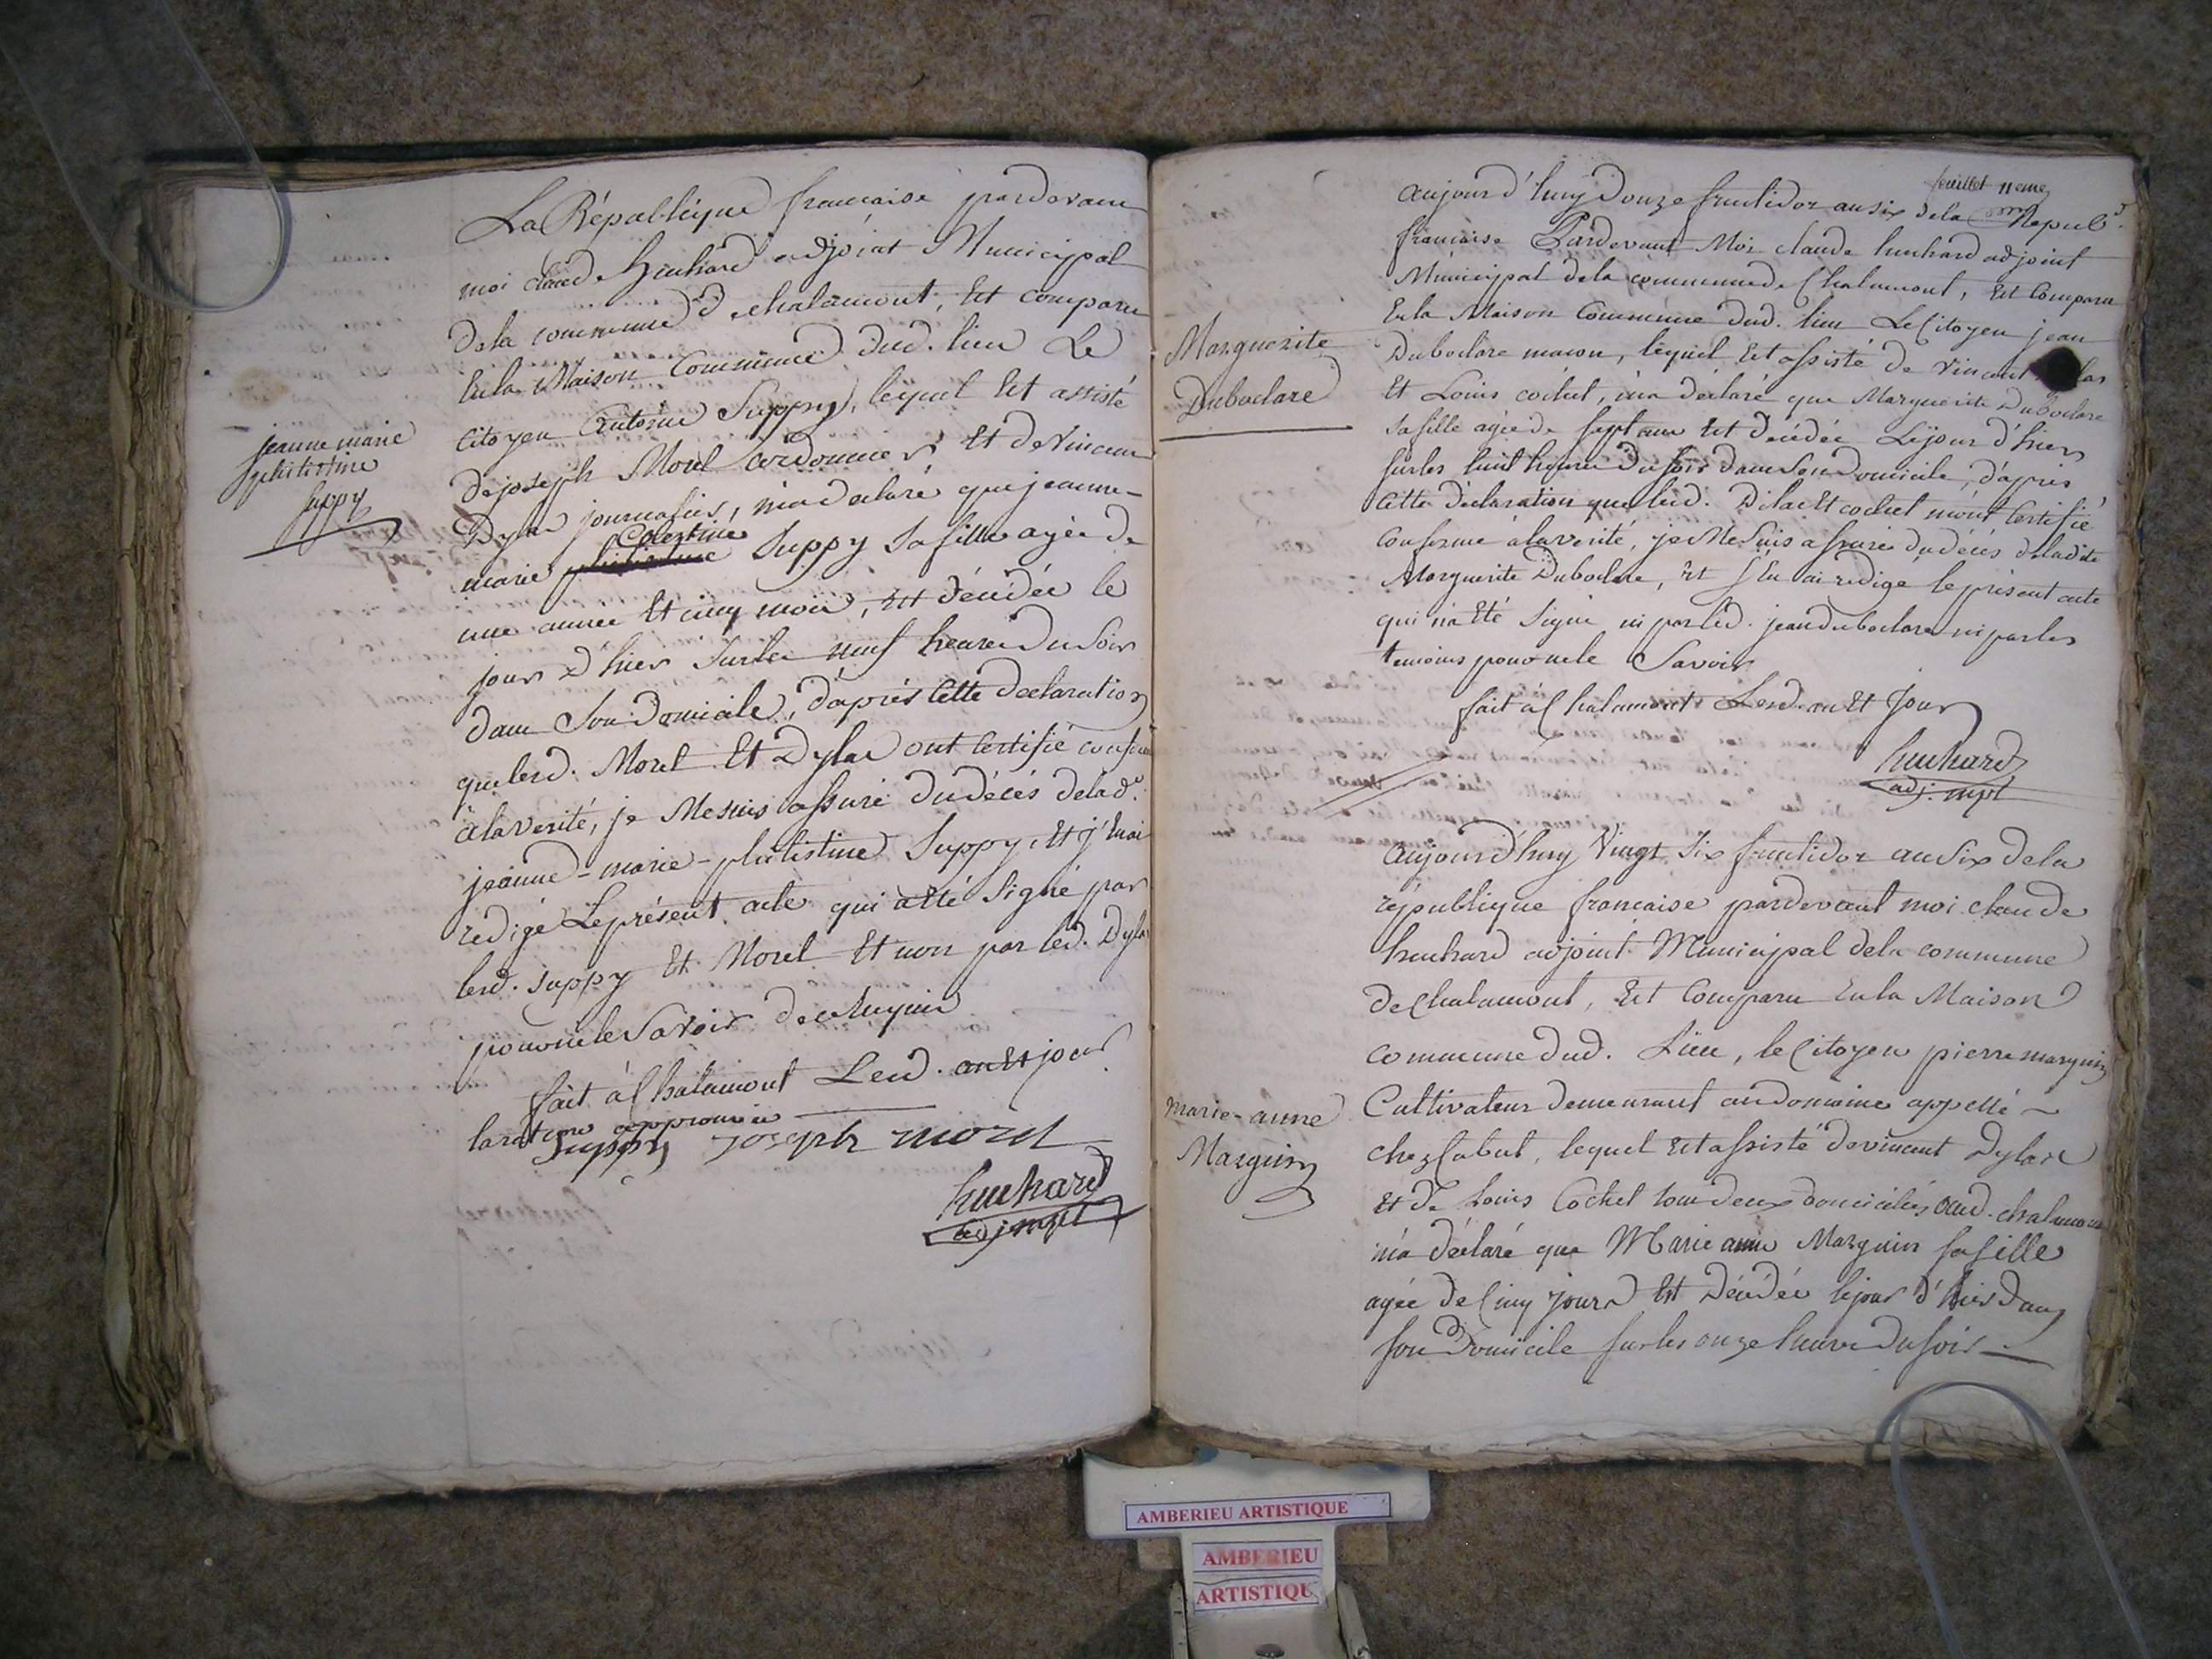 La République francaise pardevant
moi claude huchard adjoint Municipal
dela commune d chalamont, Est comparu
Enla Maison Commune dud. lieu Le
Citoyen Antoine Suppy, lequel Est assisté
de joseph Morel Cordonnier Et de Vincent
Dylas journalier, m'a declaré que jeanne-
Celestine
marie philistine Suppy Sa fille agée de
une année Et cinq mois, Est décédée le
jour d'hier Surles neuf heures du Soir
dans Son domicile, d'après Cette declaration
que lesd. Morel Et Dylas ont Certifié conforme
à la Verité, je Me suis assuré du décés delad.e
jeanne-marie-philistine Suppy, Et j'Enai
redigé Le présent acte qui a Eté Signé par
led. Suppy Et Morel Et non par led. Dylas
pour ne le Savoir de ce Enquis
fait à Chalamont Lesd. an Et jour
larature approuvée
Suppy joseph morel
huchard
adj. mpl
jeanne marie
philistine
Suppy
feuillet 11eme
aujourd'huy Douze fructidor an six dela Republ.
francaise Pardevant Moi claude huchard adjoint
Municipal dela commune de Chalamont, Est Comparu
Enla Maison Commune dud. lieu Le Citoyen jean
Duboclare macon, lequel Est assisté de Vincent
Et Louis cochet, m'a déclaré que Marguerite Duboclare
sa fille agée de sept ans Est Decédée Le jour d'hier
surles huit heures du soir dans son Domicile, d'après
Cette déclaration que lesd. Dilas Et cochet m'ont Certifié
Conforme à la verité, je Me Suis assuré du décés de ladite
Marguerite Duboclare, Et J'En ai redigé le présent acte
qui n'a Eté Signé ni par led. jean duboclare ni par les
temoins pour ne le Savoir
fait à Chalamont Lesd. an Et Jour
huchard
adj. mpl
Marguerite
Duboclare
aujourd'huy Vingt Six fructidor an Six dela
république francaise pardevant moi claude
huchard adjoint Municipal dela commune
de Chalamont, Est Comparu Enla Maison
commune dud. Lieu, le Citoyen pierre marguin
Cultivateur demeurant au domaine appellé
chez Cabut, lequel Est assisté de vincent Dylas
Et de Louis Cochet tous deux domiciliés aud. chalamont
m'a déclaré que Marie anne Marguin sa fille
agée de Cinq jours Est Décédée le jour d'hier dans
son Domicile sur les onze heures du soir
marie-anne
Marguin
AMBERIEU ARTISTIQUE
AMBERIEU
ARTISTIQU